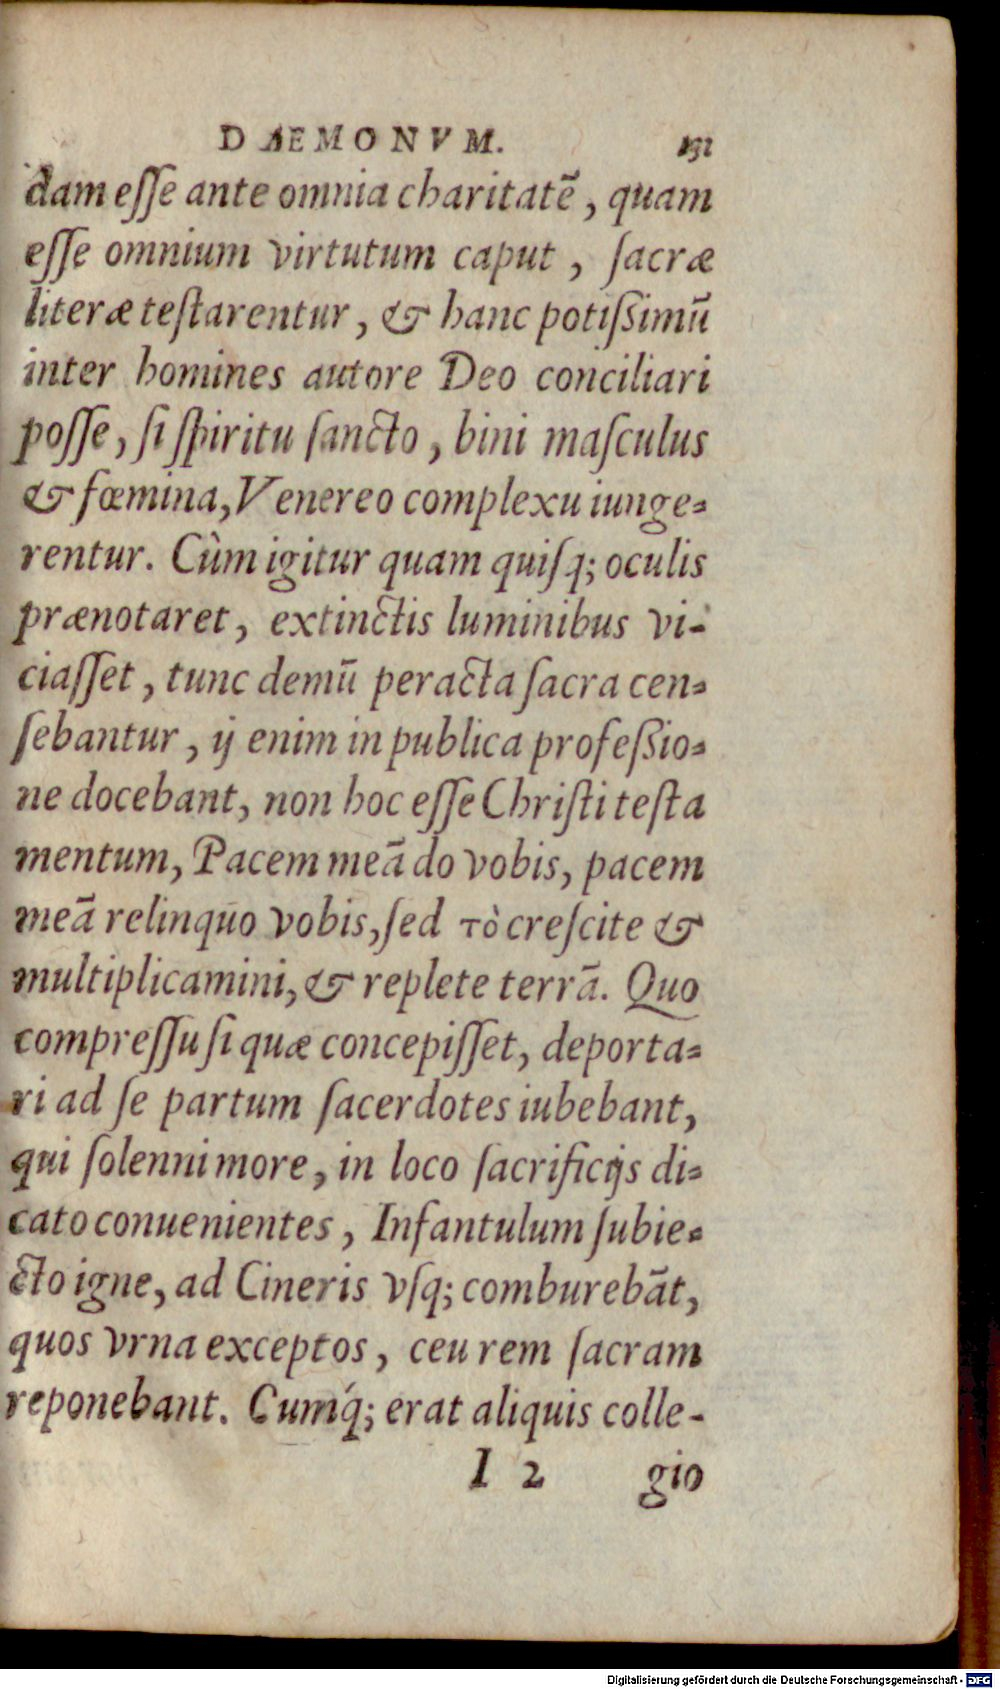 DAEMONVM. 131
dam eſſe ante omnia charitatē, quam
eſſe omnium virtutum caput, ſacræ
literæ teſtarentur, & hanc potiſſimū
inter homines autore Deo conciliari
poſſe, ſi ſpiritu ſancto, bini maſculus
& fœmina, Venereo complexu iunge-
rentur. Cùm igitur quam quiſq; oculis
prænotaret, extinctis luminibus vi-
ciaſſet, tunc demū peracta ſacra cen-
ſebantur, ij enim in publica profeſſio-
ne docebant, non hoc eſſe Chriſti teſta
mentum, Pacem meā do vobis, pacem
meā relinquo vobis, ſed τὸ creſcite &
multiplicamini, & replete terrā. Quo
compreſſu ſi quæ concepiſſet, deporta-
ri ad ſe partum ſacerdotes iubebant,
qui ſolenni more, in loco ſacrificijs di-
cato conuenientes, Infantulum ſubie-
cto igne, ad Cineris vſq; comburebāt,
quos vrna exceptos, ceu rem ſacram
reponebant. Cumq́; erat aliquis colle-
I 2 gio
Digitalisierung gefördert durch die Deutsche Forschungsgemeinschaft - DFG